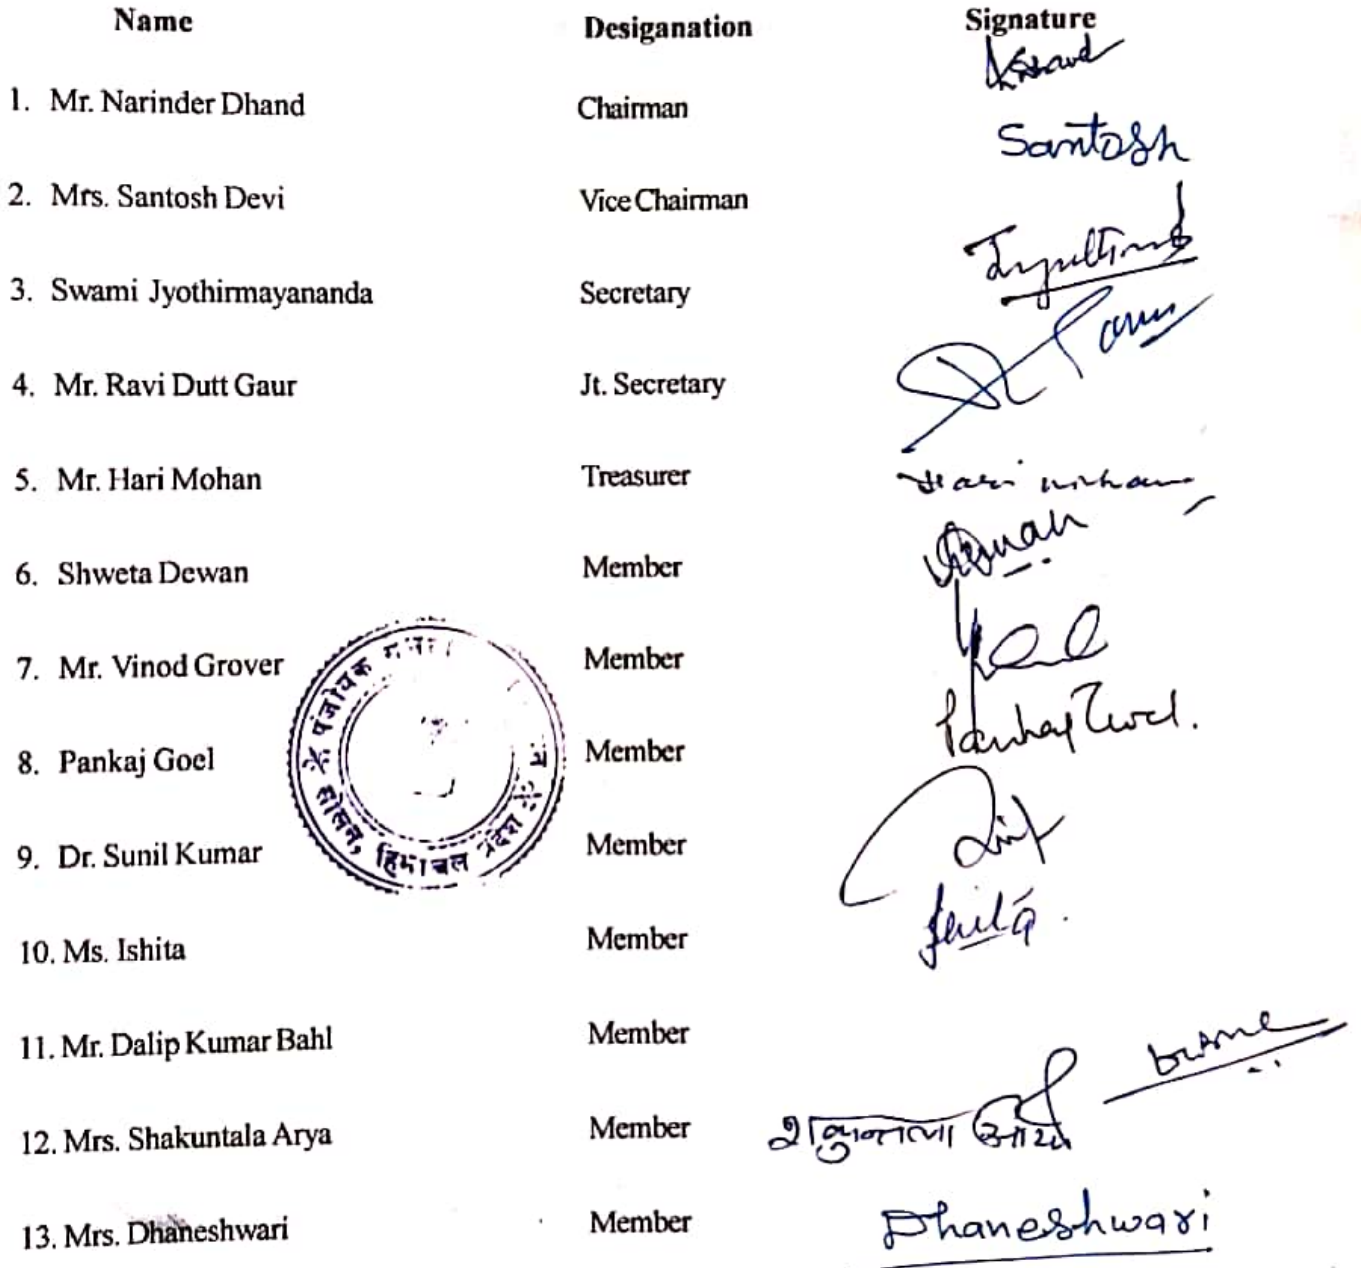 Name Desiganation Signature
1. Mr. Narinder Dhand Chairman
Santosh
2. Mrs. Santosh Devi Vice Chairman
3. Swami Jyothirmayananda Secretary
4. Mr. Ravi Dutt Gaur Jt. Secretary
5. Mr. Hari Mohan Treasurer Hari Mohan
6. Shweta Dewan Member
7. Mr. Vinod Grover Member
Pankaj Goel.
8. Pankaj Goel Member
9. Dr. Sunil Kumar Member
Ishita
10. Ms. Ishita Member
11. Mr. Dalip Kumar Bahl Member
12. Mrs. Shakuntala Arya Member शकुन्तला आर्य
13. Mrs. Dhaneshwari Member Dhaneshwari
सोलन, हिमाचल प्रदेश